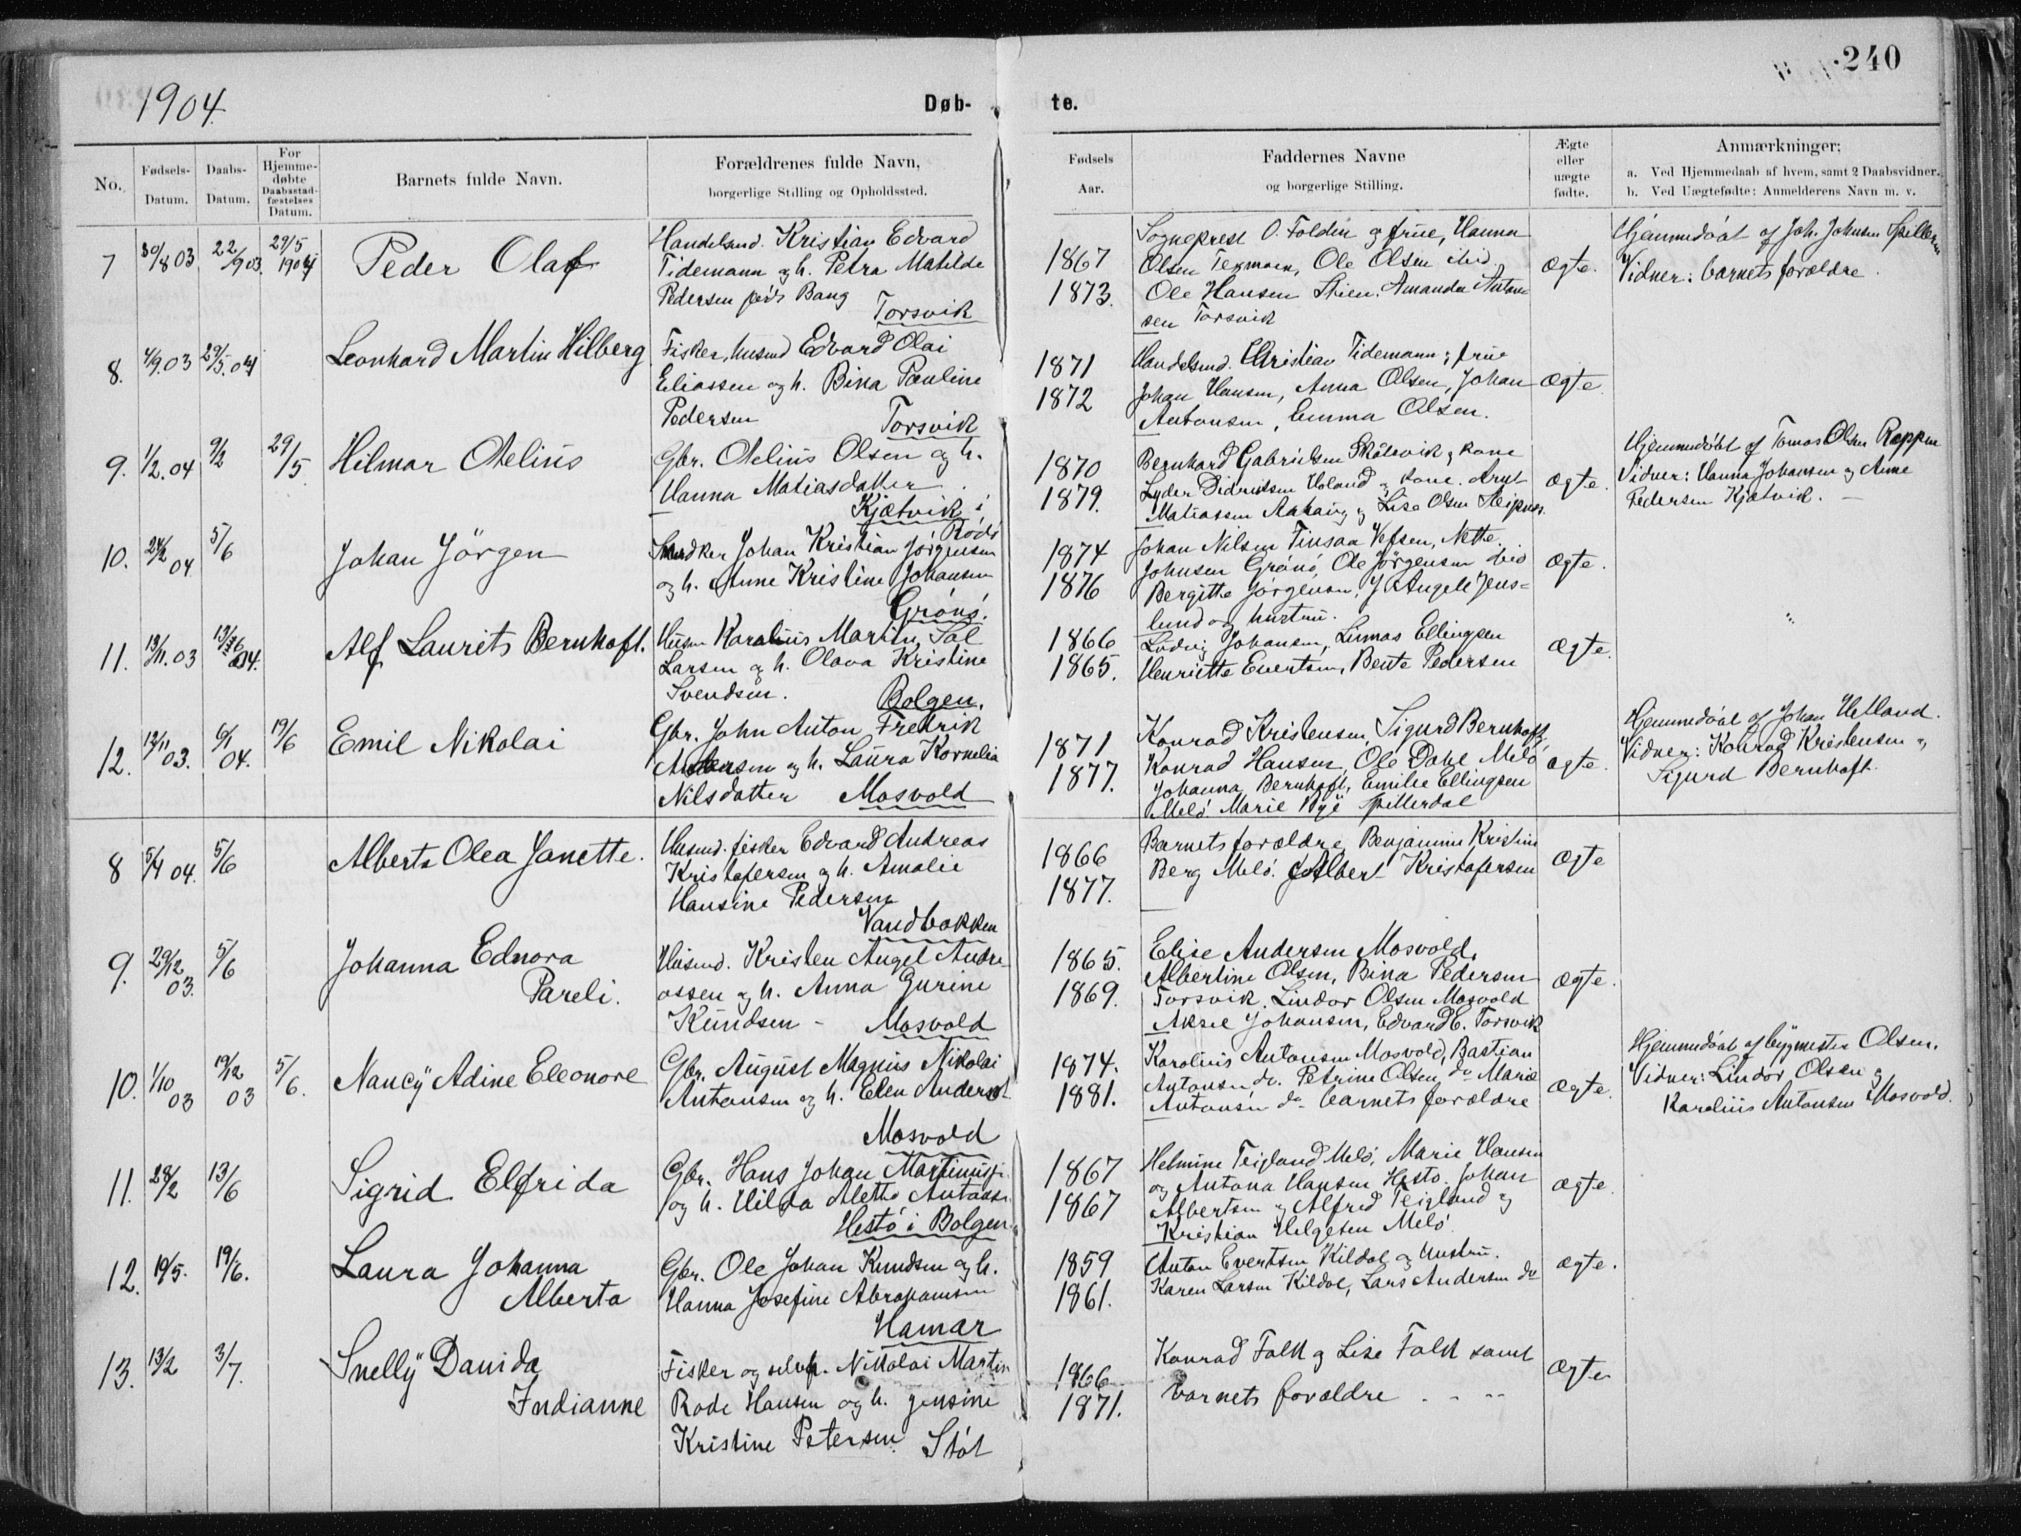 1904.
Døb-
te.
240
No.
Fødsels-
Datum.
Daabs-
Datum.
For
Hjemme-
døbte
Daabsstad-
fæstelses
Datum.
Barnets fulde Navn.
Forældrenes fulde Navn,
borgerlige Stilling og Opholdssted.
Fødsels
Aar.
Faddernes Navne
og borgerlige Stilling.
Ægte
eller
uægte
fødte.
Anmærkninger;
a. Ved Hjemmedaab af hvem, samt 2 Daabsvidner.
b. Ved Uægtefødte: Anmelderens Navn m. v.
7 30/8 03 22/9 03 29/5 1904
Peder Olaf
Handelsmd. Kristian Edvard
Tidemann og h. Petra Matilde
Pedersen Bang
Torsvik
1867
1873.
Sogneprest O. Foldin og frue, Hanna
Olsen Ole Olsen ibid.
Ole Hansen Amanda Anton-
sen Torsvik
Ægte.
Hjemmedøbt af Joh. Johnsen
Vidner: barnets forældre.
8. 4/9.03 29/5.04
Leonhard Martin Hilberg
Fisker, husmd Edvard Olai
Eliassen og h. Bina Pauline
Pedersen Torsvik
1871
1872
Handelsmd. Christian Tidemann & frue
Johan Hansen, Anna Olsen, Johan
Antonsen, Emma Olsen.
Ægte.
9. 1/2.04 9/2 29/5.
Hilmar Otelius
Gbr. Otelius Olsen og h.
Hanna Matiasdatter.
Kjætvik i
Rödö
1870
1879.
Bernhard Gabrielsen og kone
Lyder Didriksen og kone. Arnt
Matiassen og Lise Olsen
Ægte.
Hjemmedøbt af Tomas Olsen
Vidner: Hanna Johansen og Anne
Pedersen Kjætvik.
10. 24/2 04 5/6
Johan Jörgen
Snedker Johan Kristian Jörgensen
og h. Anne Kristine Johansen
Grönö.
1874
1876
Johan Nilsen Vefsen, Nette
Johnsen Grönö, Ole Jörgensen ibid
Bergitte Jörgensen, J Angell Jens-
lund og hustru.
Ægte.
11. 13/11.03 04.
Alf Laurits Bernhoft.
Husm Karolius Martin Sol
Larsen og h. Olava Kristine
Svendsen. Bolgen.
1866
1865.
Ludvig Johansen, Linnas Ellingsen
Henriette Evertsen, Bente Pedersen
Ægte.
12. 12/11 03. 6/1 04. 19/6
Emil Nikolai
Gbr. John Anton Fredrik
og h. Laura Kornelia
Nilsdatter Mosvold
1871
1877.
Konrad Kristensen, Sigurd Bernhoft,
Konrad Hansen, Ole Dahl Melö
Johanna Bernhoft, Emilie Ellingsen
Melö Marie Spilderdal
ægte.
Hjemmedøbt af Johan Hetland.
Vidner: Konrad Kristensen &
Sigurd Bernhoft.
8 5/4 04. 5/6
Alberta Olea Janette.
Husmd. fisker Edvard Andreas
Kristofersen og h. Amalie
Hansine Pedersen
Vandbakken
1866
1877.
Barnets forældre, Benjamin Kristine
Berg Melö. Albert Kristofersen
Ægte
9. 29/12 03. 5/6
Johanna Ednora
Pareli.
Husmd. Kristen Angel Andre-
assen og h. Anna Gurine
Knudsen - Mosvold
1865.
1869.
Elise Andersen Mosvold,
Albertine Olsen, Bina Pedersen
Torsvik, Lindor Olsen Mosvold
Aksel Johansen, Edvard E. Torsvik
Ægte.
10. 1/10 03 19/12 03 5/6.
Nancÿ Adine Eleonore
Gbr. August Magnus Nikolai
Antonsen og h. Elen
Mosvold
1874.
1881.
Karolius Antonsen Mosvold, Bastian
Antonsen do. Petrine Olsen do Marie
Antonsen do - barnets forældre
Ægte.
Hjemmedøbt af bygmester Olsen.
Vidner: Lindor Olsen &
Karolius Antonsen Mosvold.
11. 28/2 13/6
Sigrid Elfrida
Gbr. Hans Johan
og h. Hilda Alette
Hestö i Bolgen
1867
1867
Helmine Teigland Melö, Marie Hansen
og Antona Hansen Hestö. Johan
Albertsen & Alfred Teigland &
Kristian Helgesen Melö
Ægte.
12. 19/5. 19/6.
Laura Johanna
Alberta
Gbr. Ole Johan Knudsen og h.
Hanna Josefine Abrahamsen
Hamar
1859
1861.
Anton Evertsen Kildal og Hustru.
Karen Larsen Kildal, Lars Andersen do
Ægte.
13. 13/2 3/7.
Snellÿ Danida
Indianne
Fisker og selve. Nikolai Martin
Rode Hansen og h. Jensine
Kristine Petersen. Støt
1866
1871.
Konrad Falk & Lise Falk samt
barnets forældre
Ægte